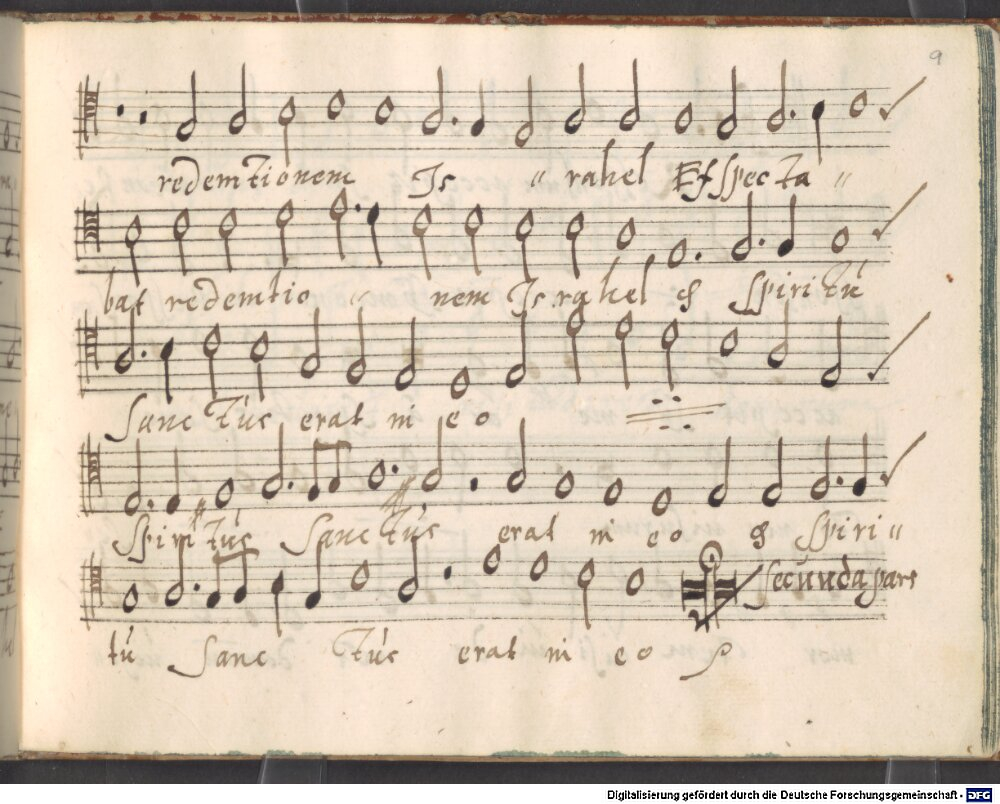 9
redemtionem Is " rahel Exspecta "
bat redemtio " nem Israhel & Spiritú
Sanctús erat in eo
Spiritús Sanctús erat in eo & Spiri "
Secúnda pars
tú Sanc túc erat in eo
Digitalisierung gefördert durch die Deutsche Forschungsgemeinschaft - DFG